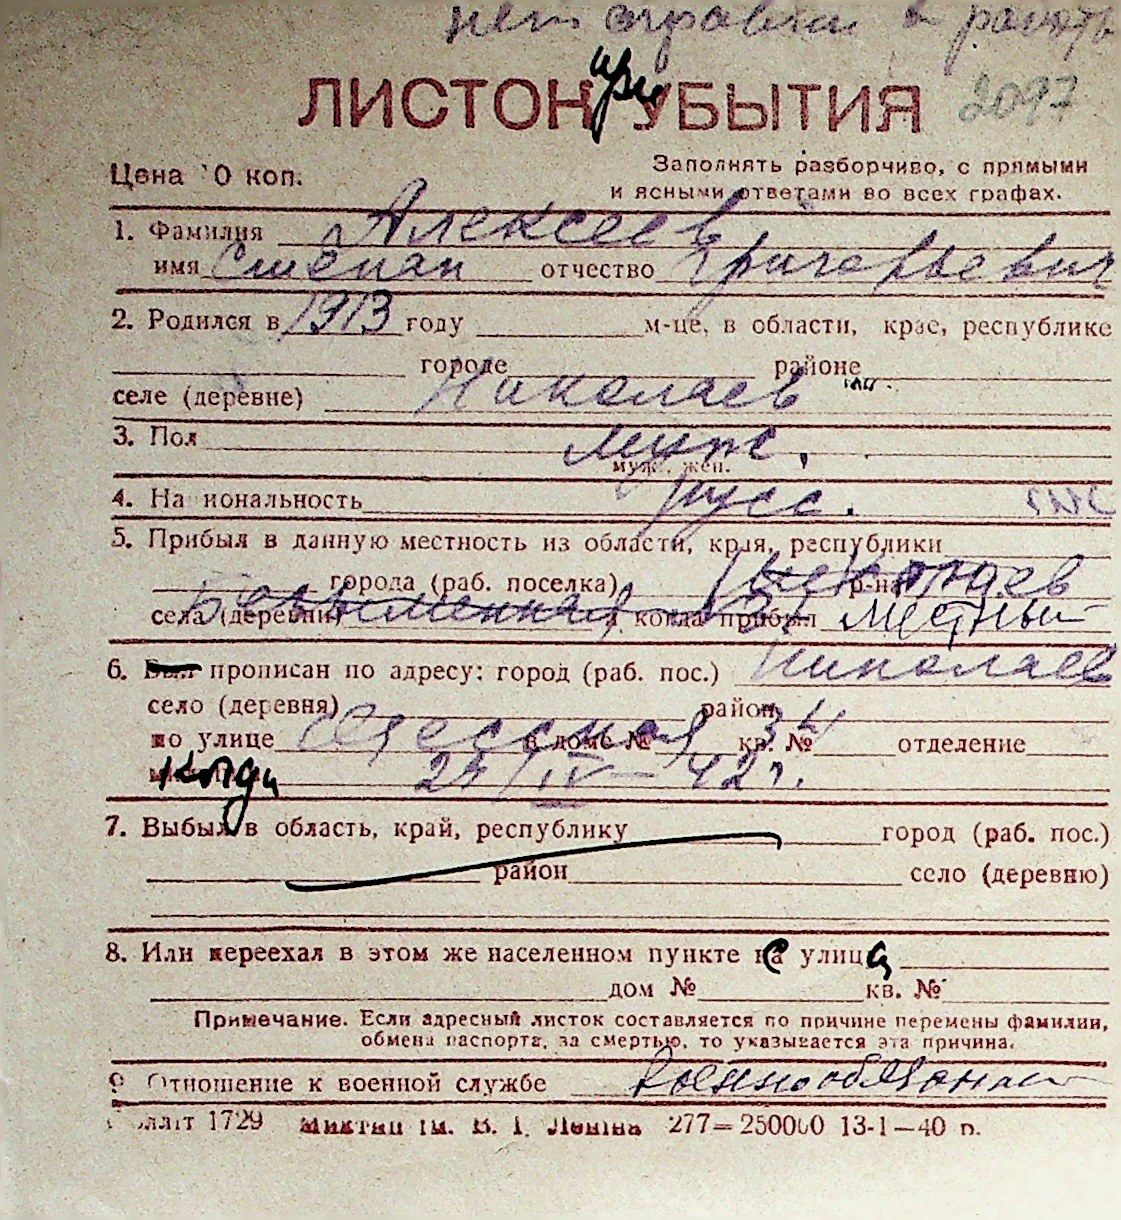 нет справки с работы
ЛИСТОК при УБЫТИЯ 2097
Цена 10 коп.
Заполнять разборчиво, с прямыми
и ясными ответами во всех графах.
1. Фамилия Алексеев
имя Степан отчество Григорьевич
2. Родился в 1913 году м-це, в области, крае, республике
городе районе
селе (деревне) Николаев
3. Пол муж.
муж. жен.
4. Национальность русс.
5. Прибыл в данную местность из области, края, республики
города (раб. поселка) р-на Николаев
села (деревни) и когда прибыл местный
6. Был прописан по адресу: город (раб. пос.) Николаев
село (деревня) район
по улице в доме № 34 кв. № отделение
когда 24/IV-42 г.
7. Выбыл в область, край, республику город (раб. пос.)
район село (деревню)
8. Или переехал в этом же населенном пункте с улица
дом № кв. №
Примечание. Если адресный листок составляется по причине перемены фамилии,
обмена паспорта, за смертью, то указывается эта причина.
9 Отношение к военной службе военнообязан
1729 Ім. В. І. Леніна 277—250000 13-1—40 р.